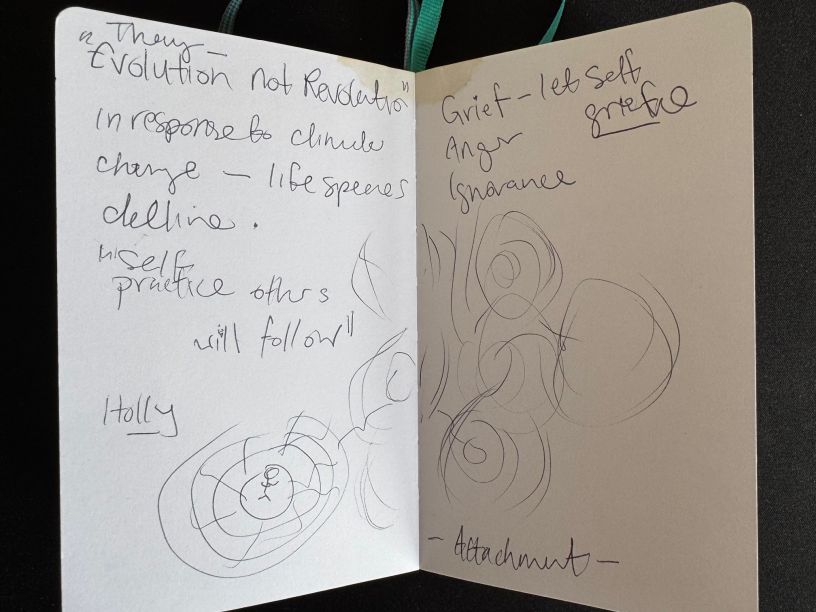 " They –
Evolution not Revolution"
in response to climate
change – life species
decline .
"self
practice others
will follow"
Holly
Grief – let self
grieve
Anger
Ignorance
– Attachment –